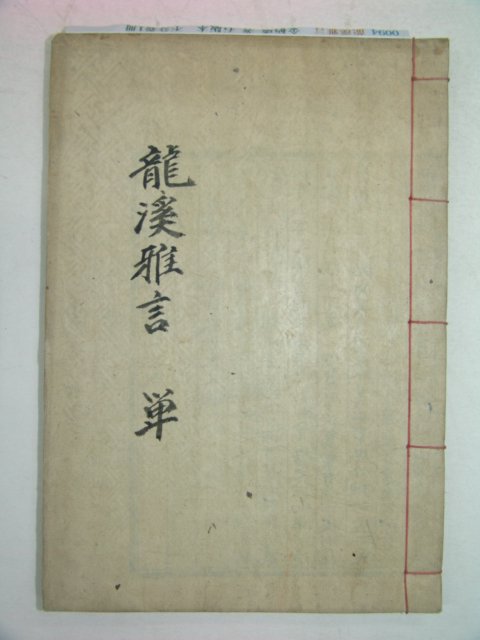 龍溪雅言 单